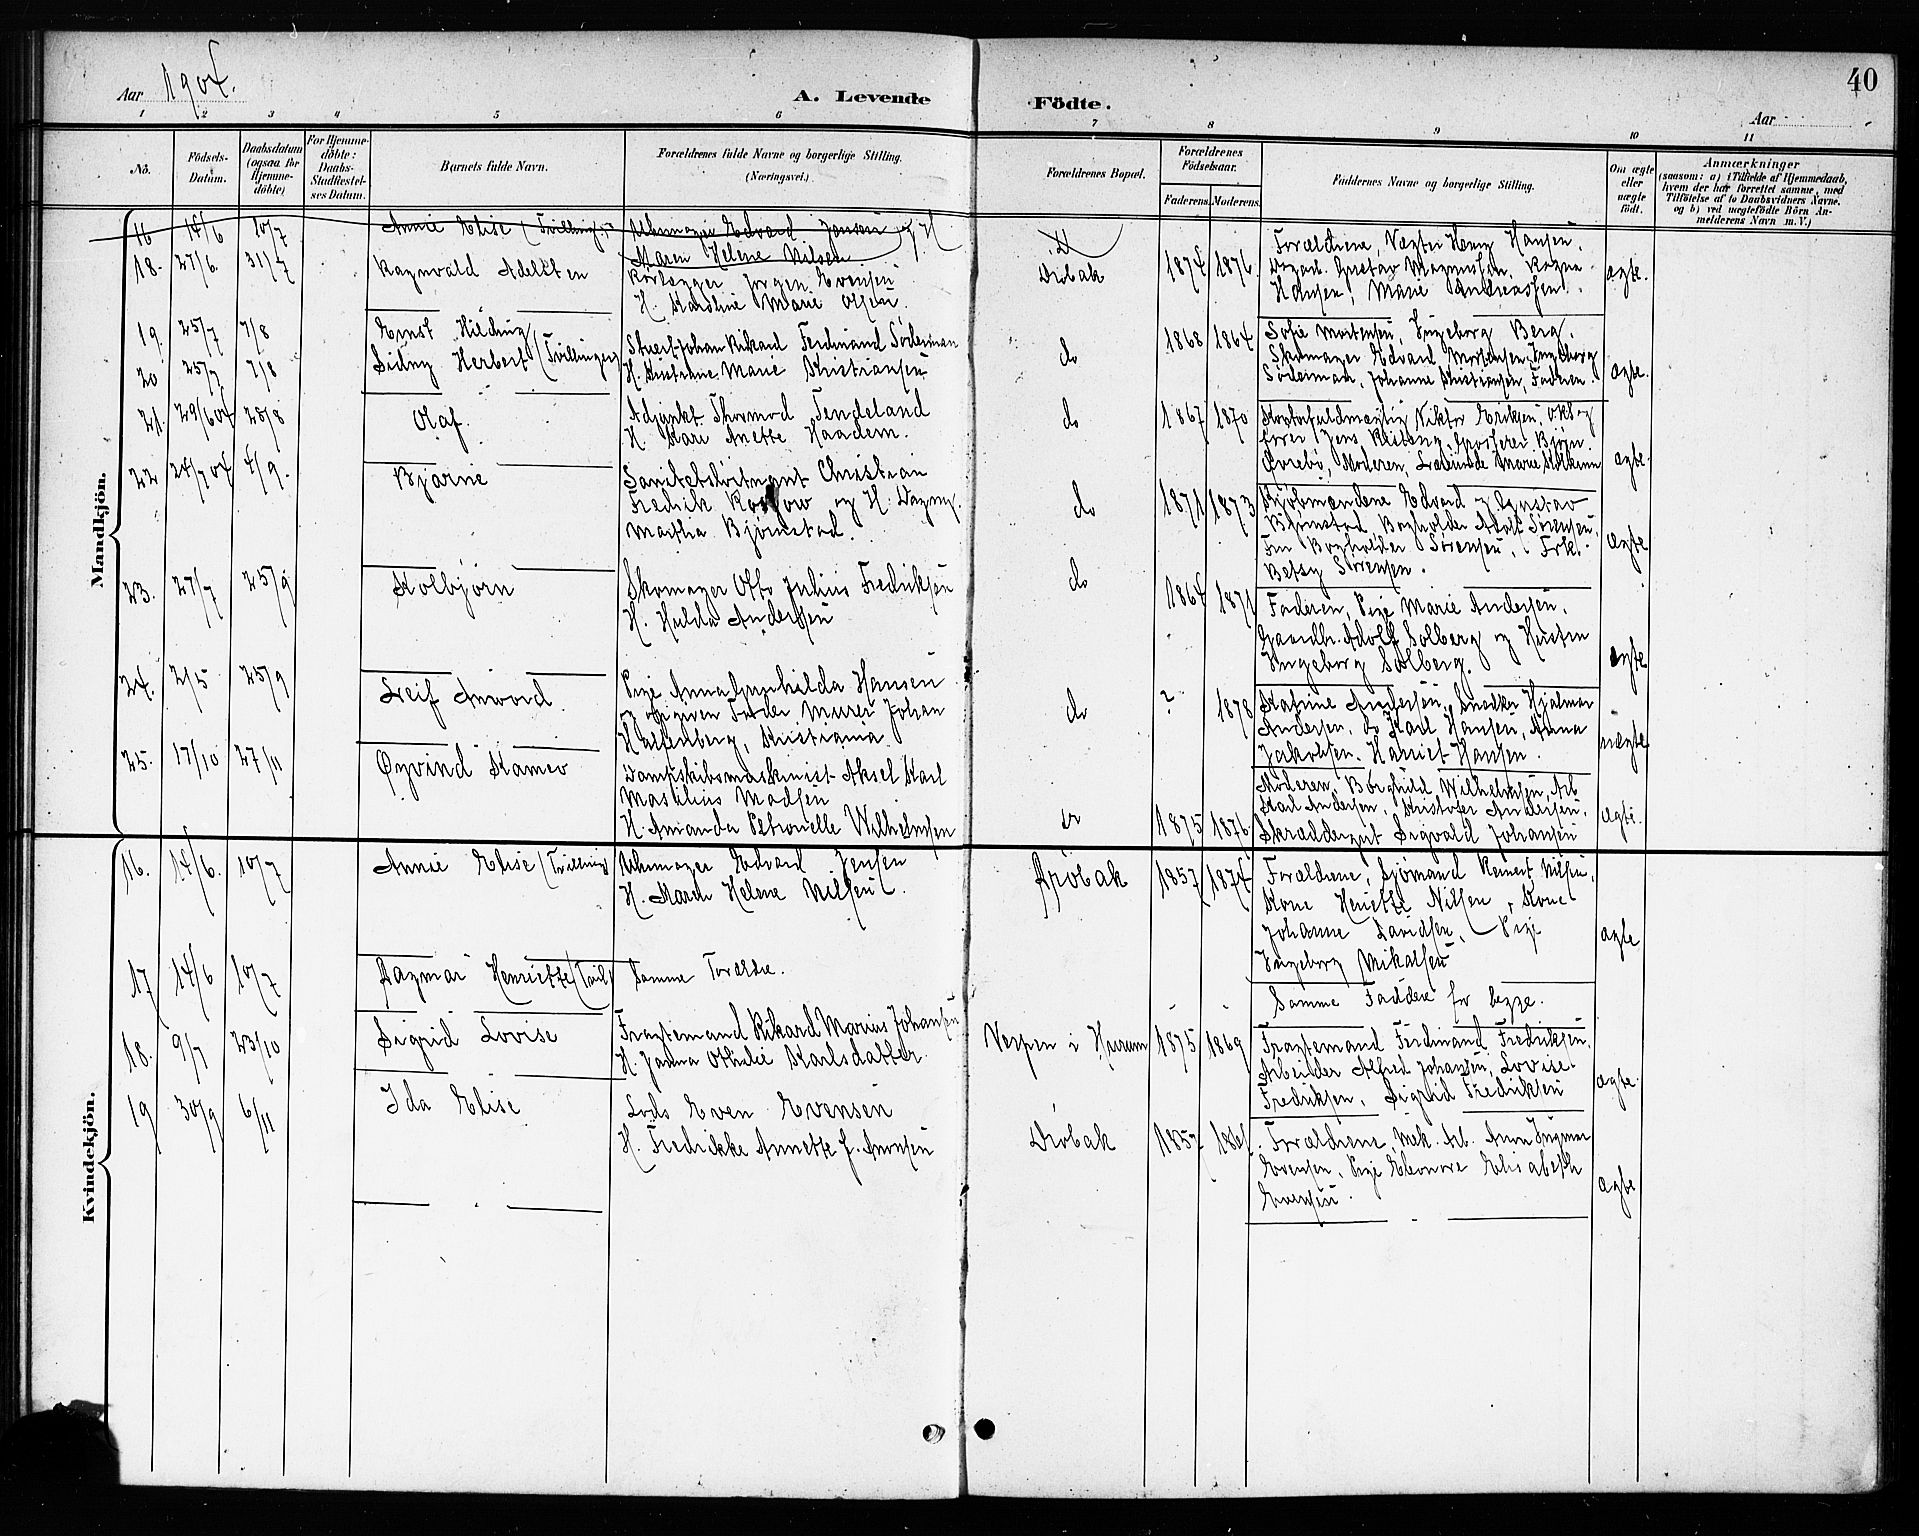 40
Aar 1904.
A. Levende
Födte.
Aar
1 2 3 4 5 6 7 8 9 10 11
No.
Födsels-
Datum.
Daabsdatum
(ogsaa for
Hjemme-
döbte)
For Hjemme-
döbte:
Daabs-
Stadfæstel-
ses Datum.
Barnets fulde Navn.
Forældrenes fulde Navne og borgerlige Stilling.
(Næringsvei.)
Forældrenes Bopæl.
Forældrenes
Födselsaar.
Faderens. Moderens.
Faddernes Navne og borgerlige Stilling.
Om ægte
eller
uægte
födt.
Anmærkninger
(saasom: a) i Tilfælde af Hjemmedaab,
hvem der har forrettet samme, med
Tilföielse af to Daabsvidners Navne.
og b) ved uægtefödte Börn An-
melderens Navn m. V.)
Mandkjön.
16 14/6 10/7 Annie Elise (Tvilling)
Uhrmager Edvard Jensen og H
Maren Helene Nilsen
18. 27/6. 31/7 Ragnvald Adelsten
Jørgen Evensen
H. Karoline Marie Olsen.
Drøbak 1874 1876
Forældrene, Vægter Hansen.
Gustav Magnussen, Ragna
Hansen, Marie Andreassen.
ægte.
19. 25/7 7/8 Ernst Hilding
20 25/7 7/8 Sidny Herbert (Tvillinger)
Stuert Johan Rikard Ferdinand Søderman
H. Kristine Marie Kristiansen
do 1868 1864
Sofie Mortensen, Ingeborg Berg,
Skomager Edvard Mortensen, Ingeborg
Søderman, Johanne Kristiansen, Faderen.
ægte.
21. 29/6 04 28/8 Olaf.
Adjunkt Thormod Tendeland
H. Kari Anette Haadem.
do 1867 1870
Kontorfuldmægtig Viktor Eriksen,
Jens Bjørn
Øvrebø, Moderen, Marie
ægte.
22 24/7 04 4/9. Bjarne
Sanitetsløitnant Christian
Fredrik og H. Dagny
Martha Bjørnstad.
do 1871 1873
Kjøbmændene Edvard og Gustav
Bjørnstad, Bogholder Adolf Sørensen,
Fru Bogholder Sørensen, Frk.
Betsy Sørensen.
ægte
23. 27/7 25/9 Kolbjørn
Skomager Otto Julius Fredriksen
H. Hulda Anderssen
do 1864 1871
Faderen, Pige Marie Andersen,
Gaardbr. Adolf Solberg og Hustru
Ingeborg Solberg.
ægte
24. 2/5 25/9 Leif Anvord.
Pige Anna Gunhilda Hansen
og opgiven Fader Murer Johan
Hallenberg, Kristiania
do ? 1878
Katrine Andersen, Snedker Hjalmar
Andersen, do Karl Hansen, Anna
Jakobsen. Harriet Hansen.
uægte
25. 17/10 27/11 Øyvind Kameo
Dampskibsmaskinist Aksel Karl
Maskilius Madsen
H. Amanda Petronelle Wilhelmsen
do 1875 1876.
Moderen, Borghild Wilhelmsen, Arb.
Karl Andersen, Kristofer Andersen,
Skræddergut Sigvald Johansen
ægte.
Kvindekjön.
16. 14/6. 10/7 Annie Elise (Tvilling)
Uhrmager Edvard Jensen
H. Maren Helene Nilsen.
Drøbak 1857 1874
Forældrene, Sjømand Reinert Nilsen,
Kone Henriette Nilsen, Kone
Johanne Davidsen, Pige
Ingeborg Mikalsen
ægte
17 14/6 10/7 Dagmar Henriette (Tvill)
Samme Forældre.
Samme Faddere for begge.
18. 9/7 23/10 Sigrid Lovise
Fragtemand Rikard Marius Johansen
H. Janna Othilie Karlsdatter.
Verpen i Hurum 1875 1869
Fragtemand Ferdinand Fredriksen,
Arbeider Alfred Johansen, Lovise
Fredriksen, Sigrid Fredriksen
ægte
19 30/9 6/11 Ida Elise
Lods Even Evensen
H. Fredrikke Annette f. Amnsen
Drøbak 1857
Forældrene, Mek. Arb. Anton Ingmar
Evensen, Pige Eleonore Elisabeth
Evensen.
ægte